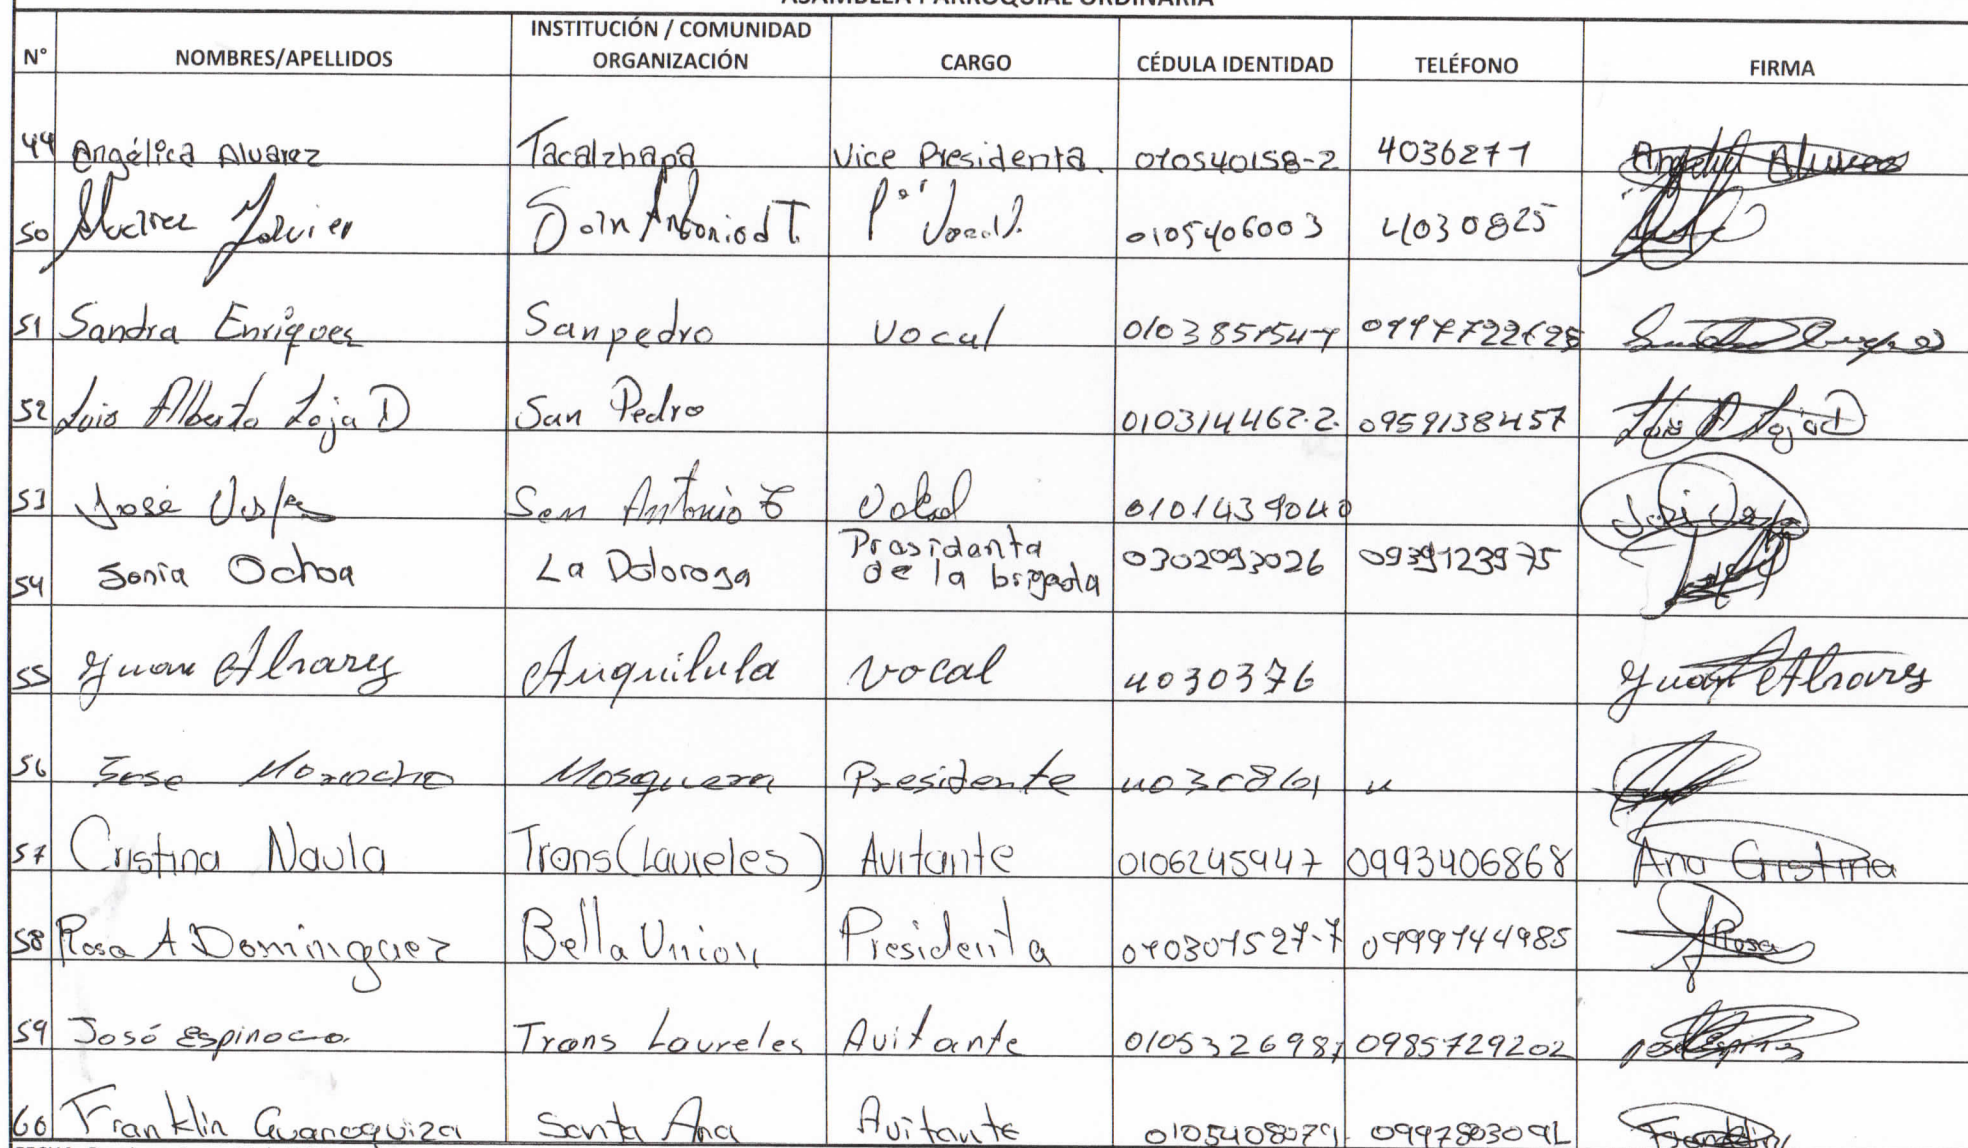 ASAMBLEA PARROQUIAL ORDINARIA
N° NOMBRES/APELLIDOS INSTITUCIÓN / COMUNIDAD ORGANIZACIÓN CARGO CÉDULA IDENTIDAD TELÉFONO FIRMA
Angélica Alvarez Tacalzhapa Vice Presidenta. 010540158-2 4036271 Angélica Alvarez
50 Alvarez Javier San Antonio d T. 1er Vocal. 0105406003 4030825
51 Sandra Enriquez San pedro vocal
52 Luis Alberto Loja D San Pedro 010314462-2. 0959138457 Luis A Loja D
53 José San Antonio Vocal
54 Sonia Ochoa La Dolorosa Presidanta de la brigada 0302093026 0939123975
55 Juan Alvarez Auquilula vocal 4030376 Juan Alvarez
56 Jose Morocho Mosquera Presidente
57 Cristina Naula Trans (Laureles) Avitante 0106245947 0993406868 Ana Cristina
58 Rosa A Dominguez Bella Union Presidenta 010301527-7 0999144985 Rosa
59 José Espinoco Trans Laureles Avitante 0985729202
60 Franklin Guanoquiza Santa Ana Avitante Franklin